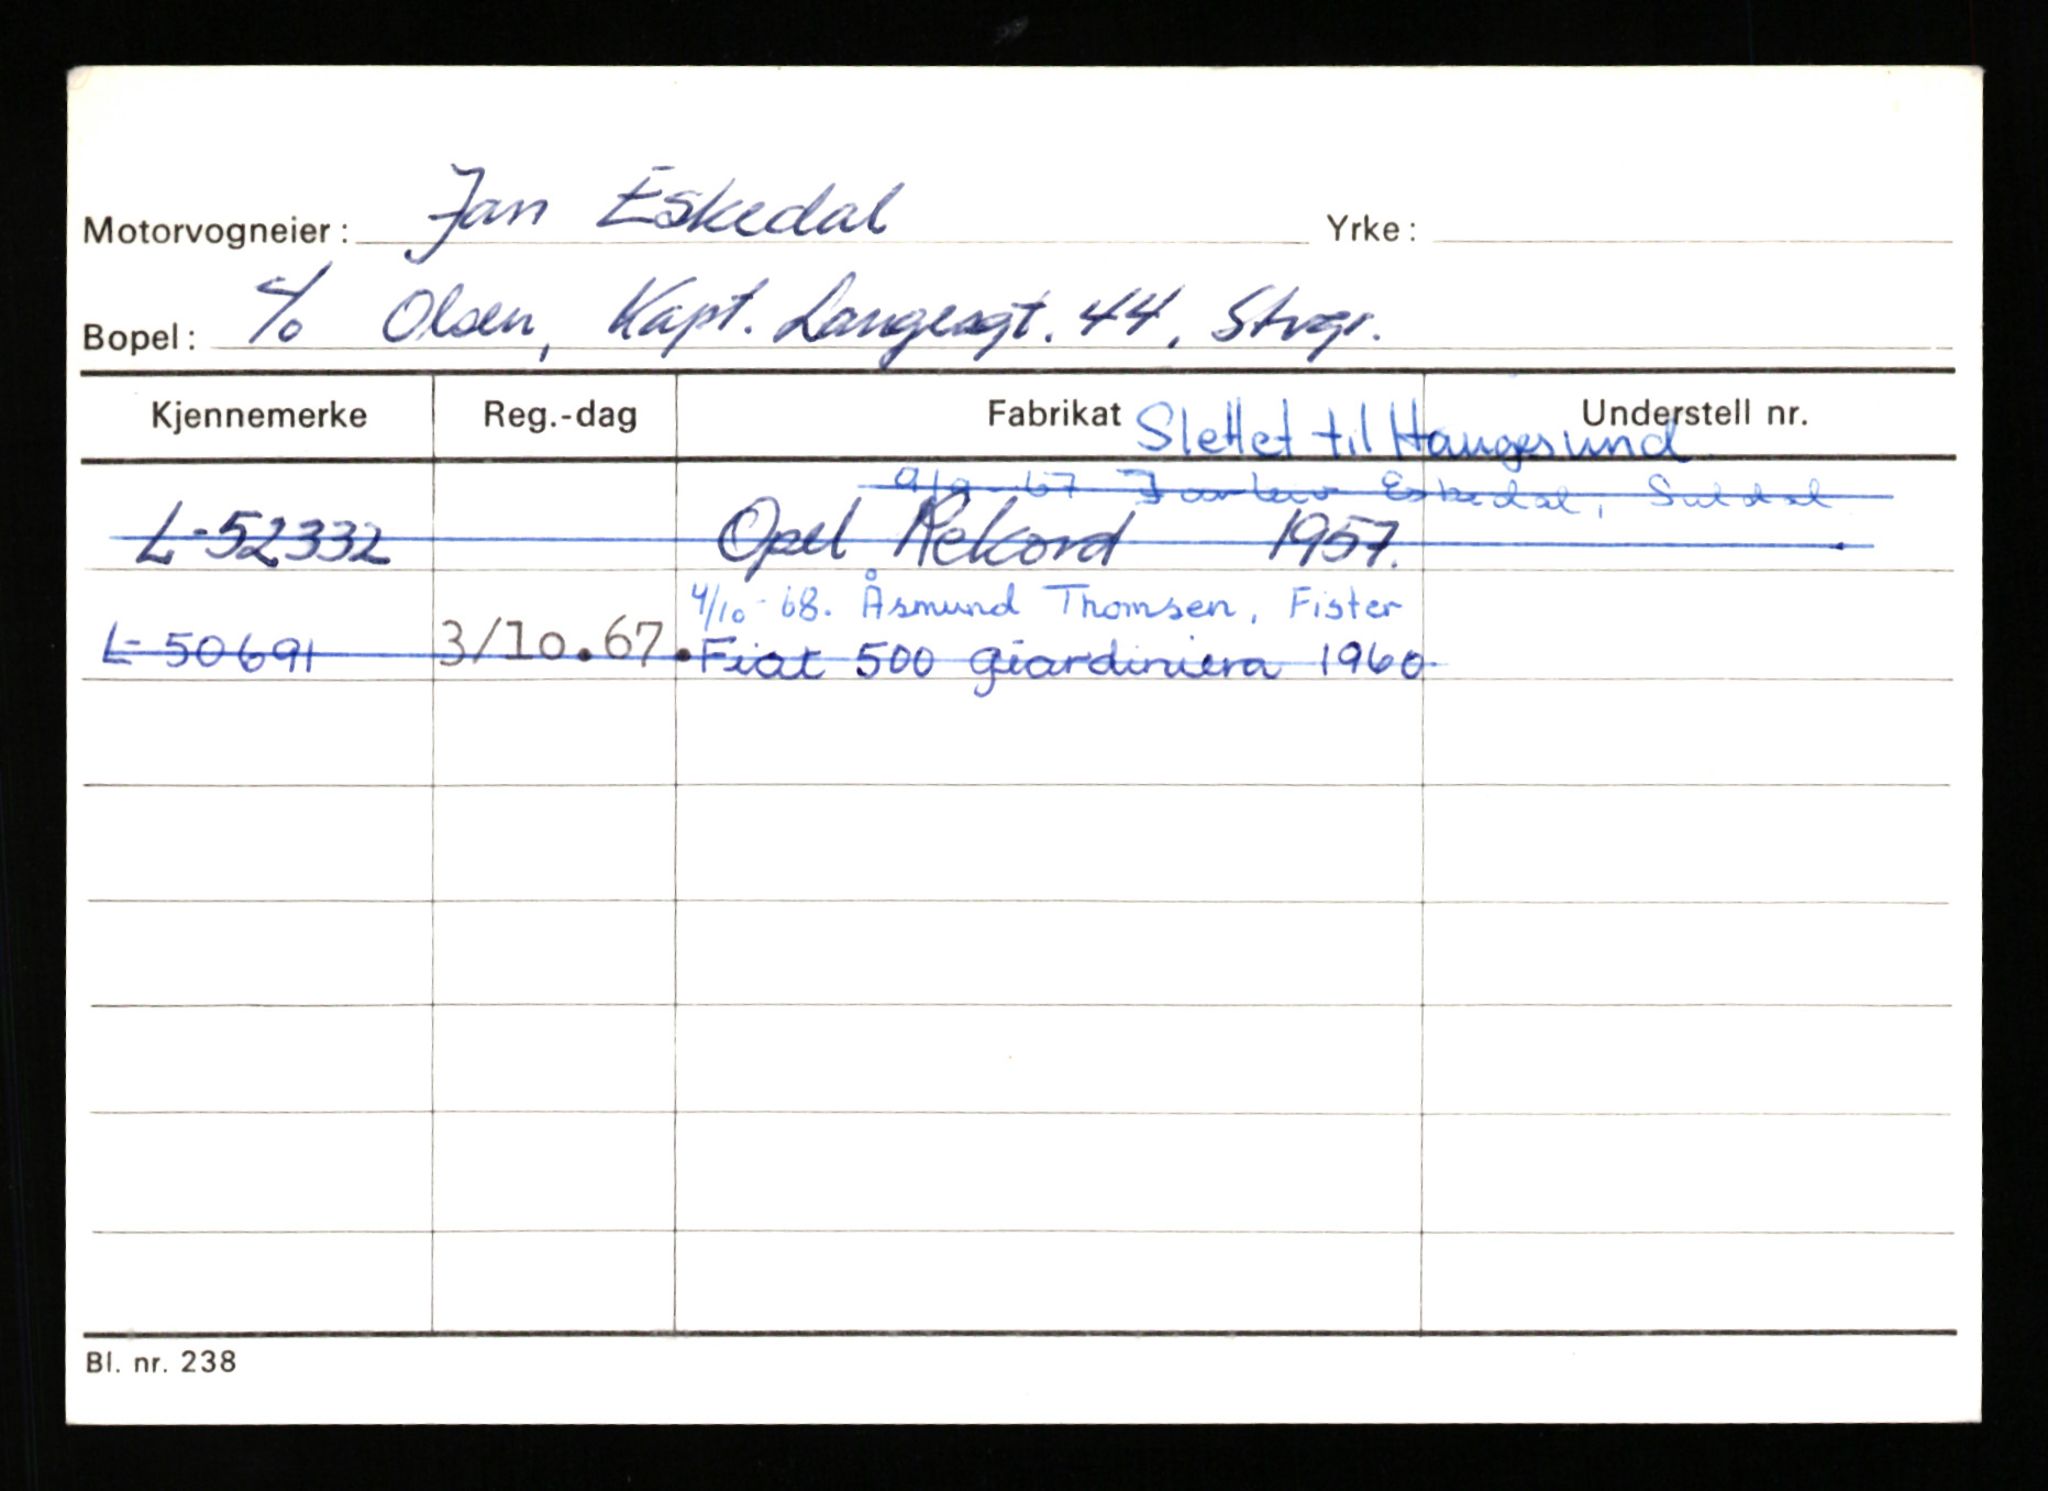 Motorvogneier: Jan Eskedal Yrke:
Bopel: c/o Olsen, Kapt. Langesgt. 44, Stvgr.
Kjennemerke Reg.-dag Fabrikat Understell nr.
Slettet til Haugesund
9/9-67 Eskedal, Suldal
L-52332 Opel Rekord 1957.
4/10-68. Åsmund Thomsen, Fister
L-50691 3/10.67. Fiat 500 giardiniera 1960
Bl. nr. 238